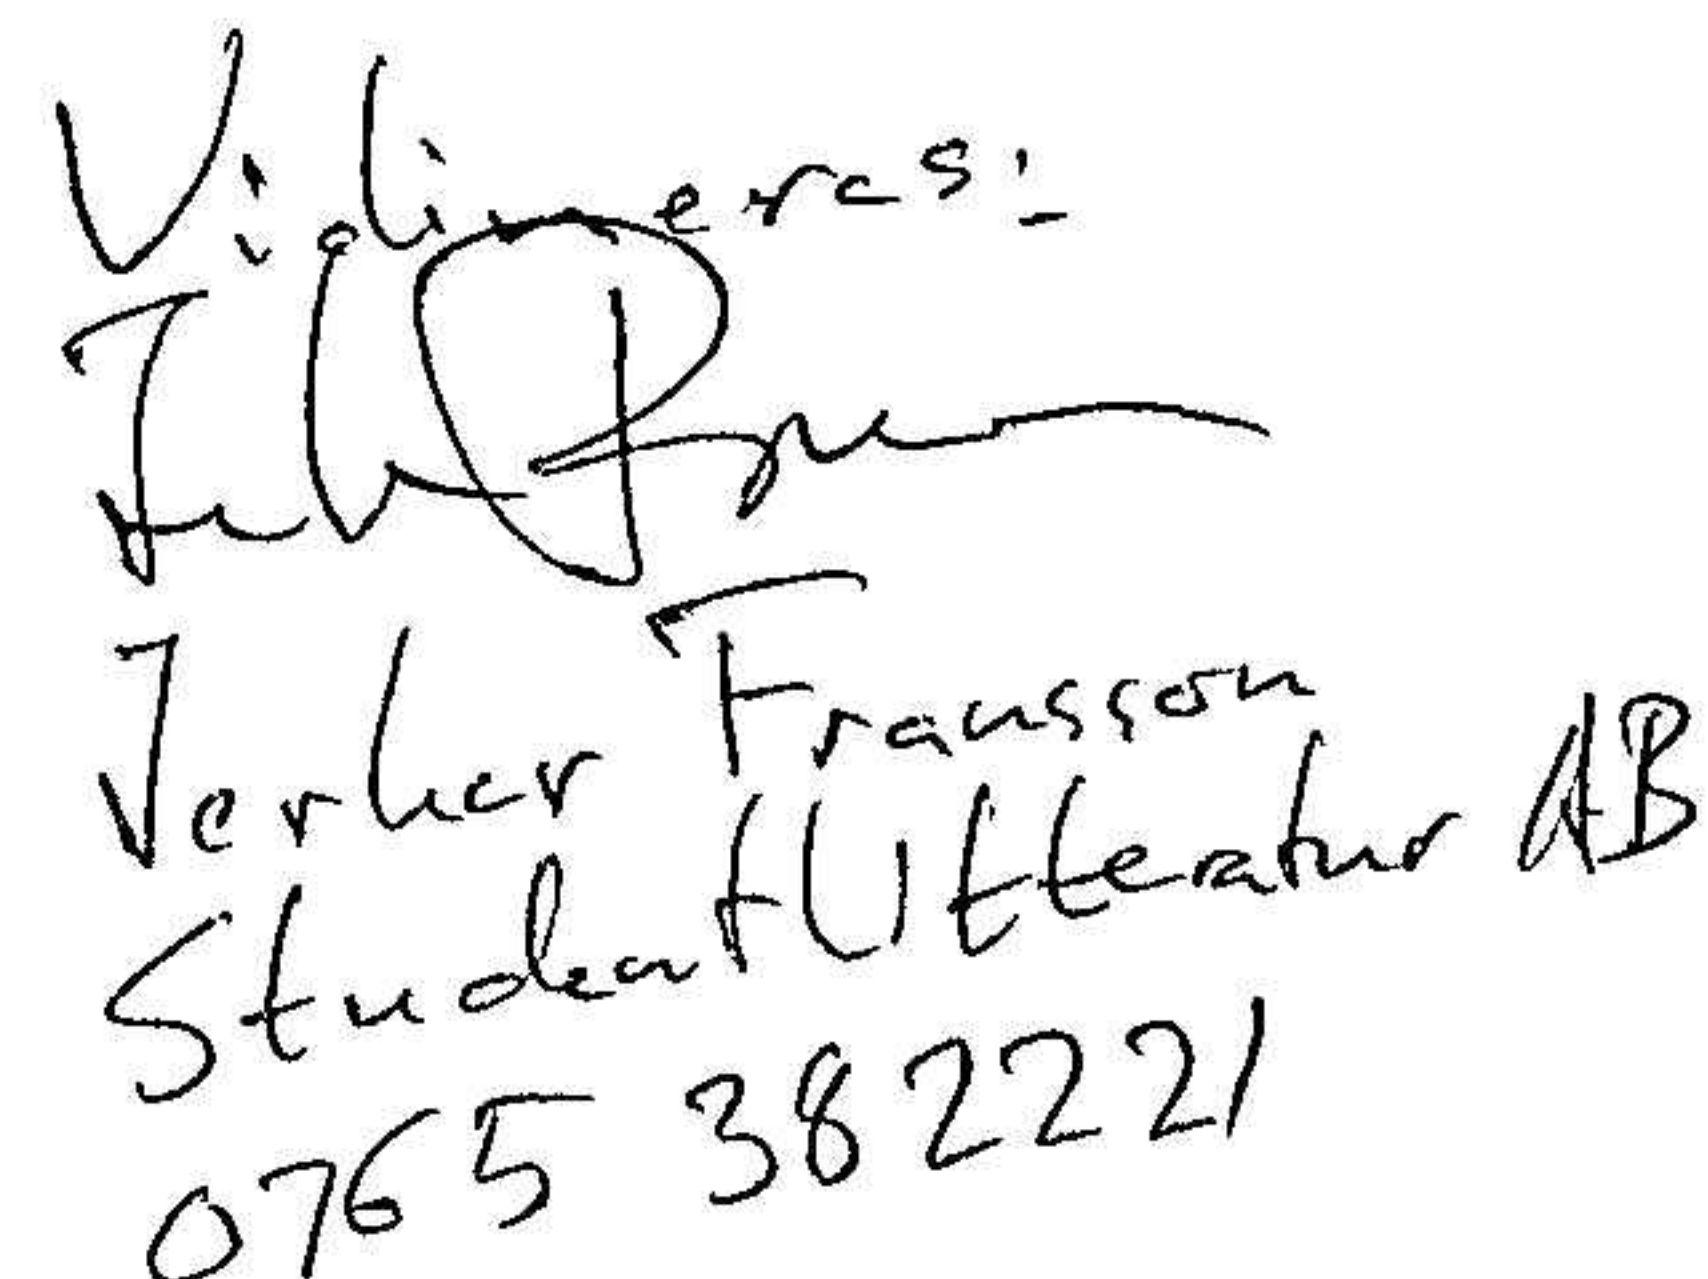 Vidimeras:
Jerker Fransson
Studentlitteratur AB
0765 382221